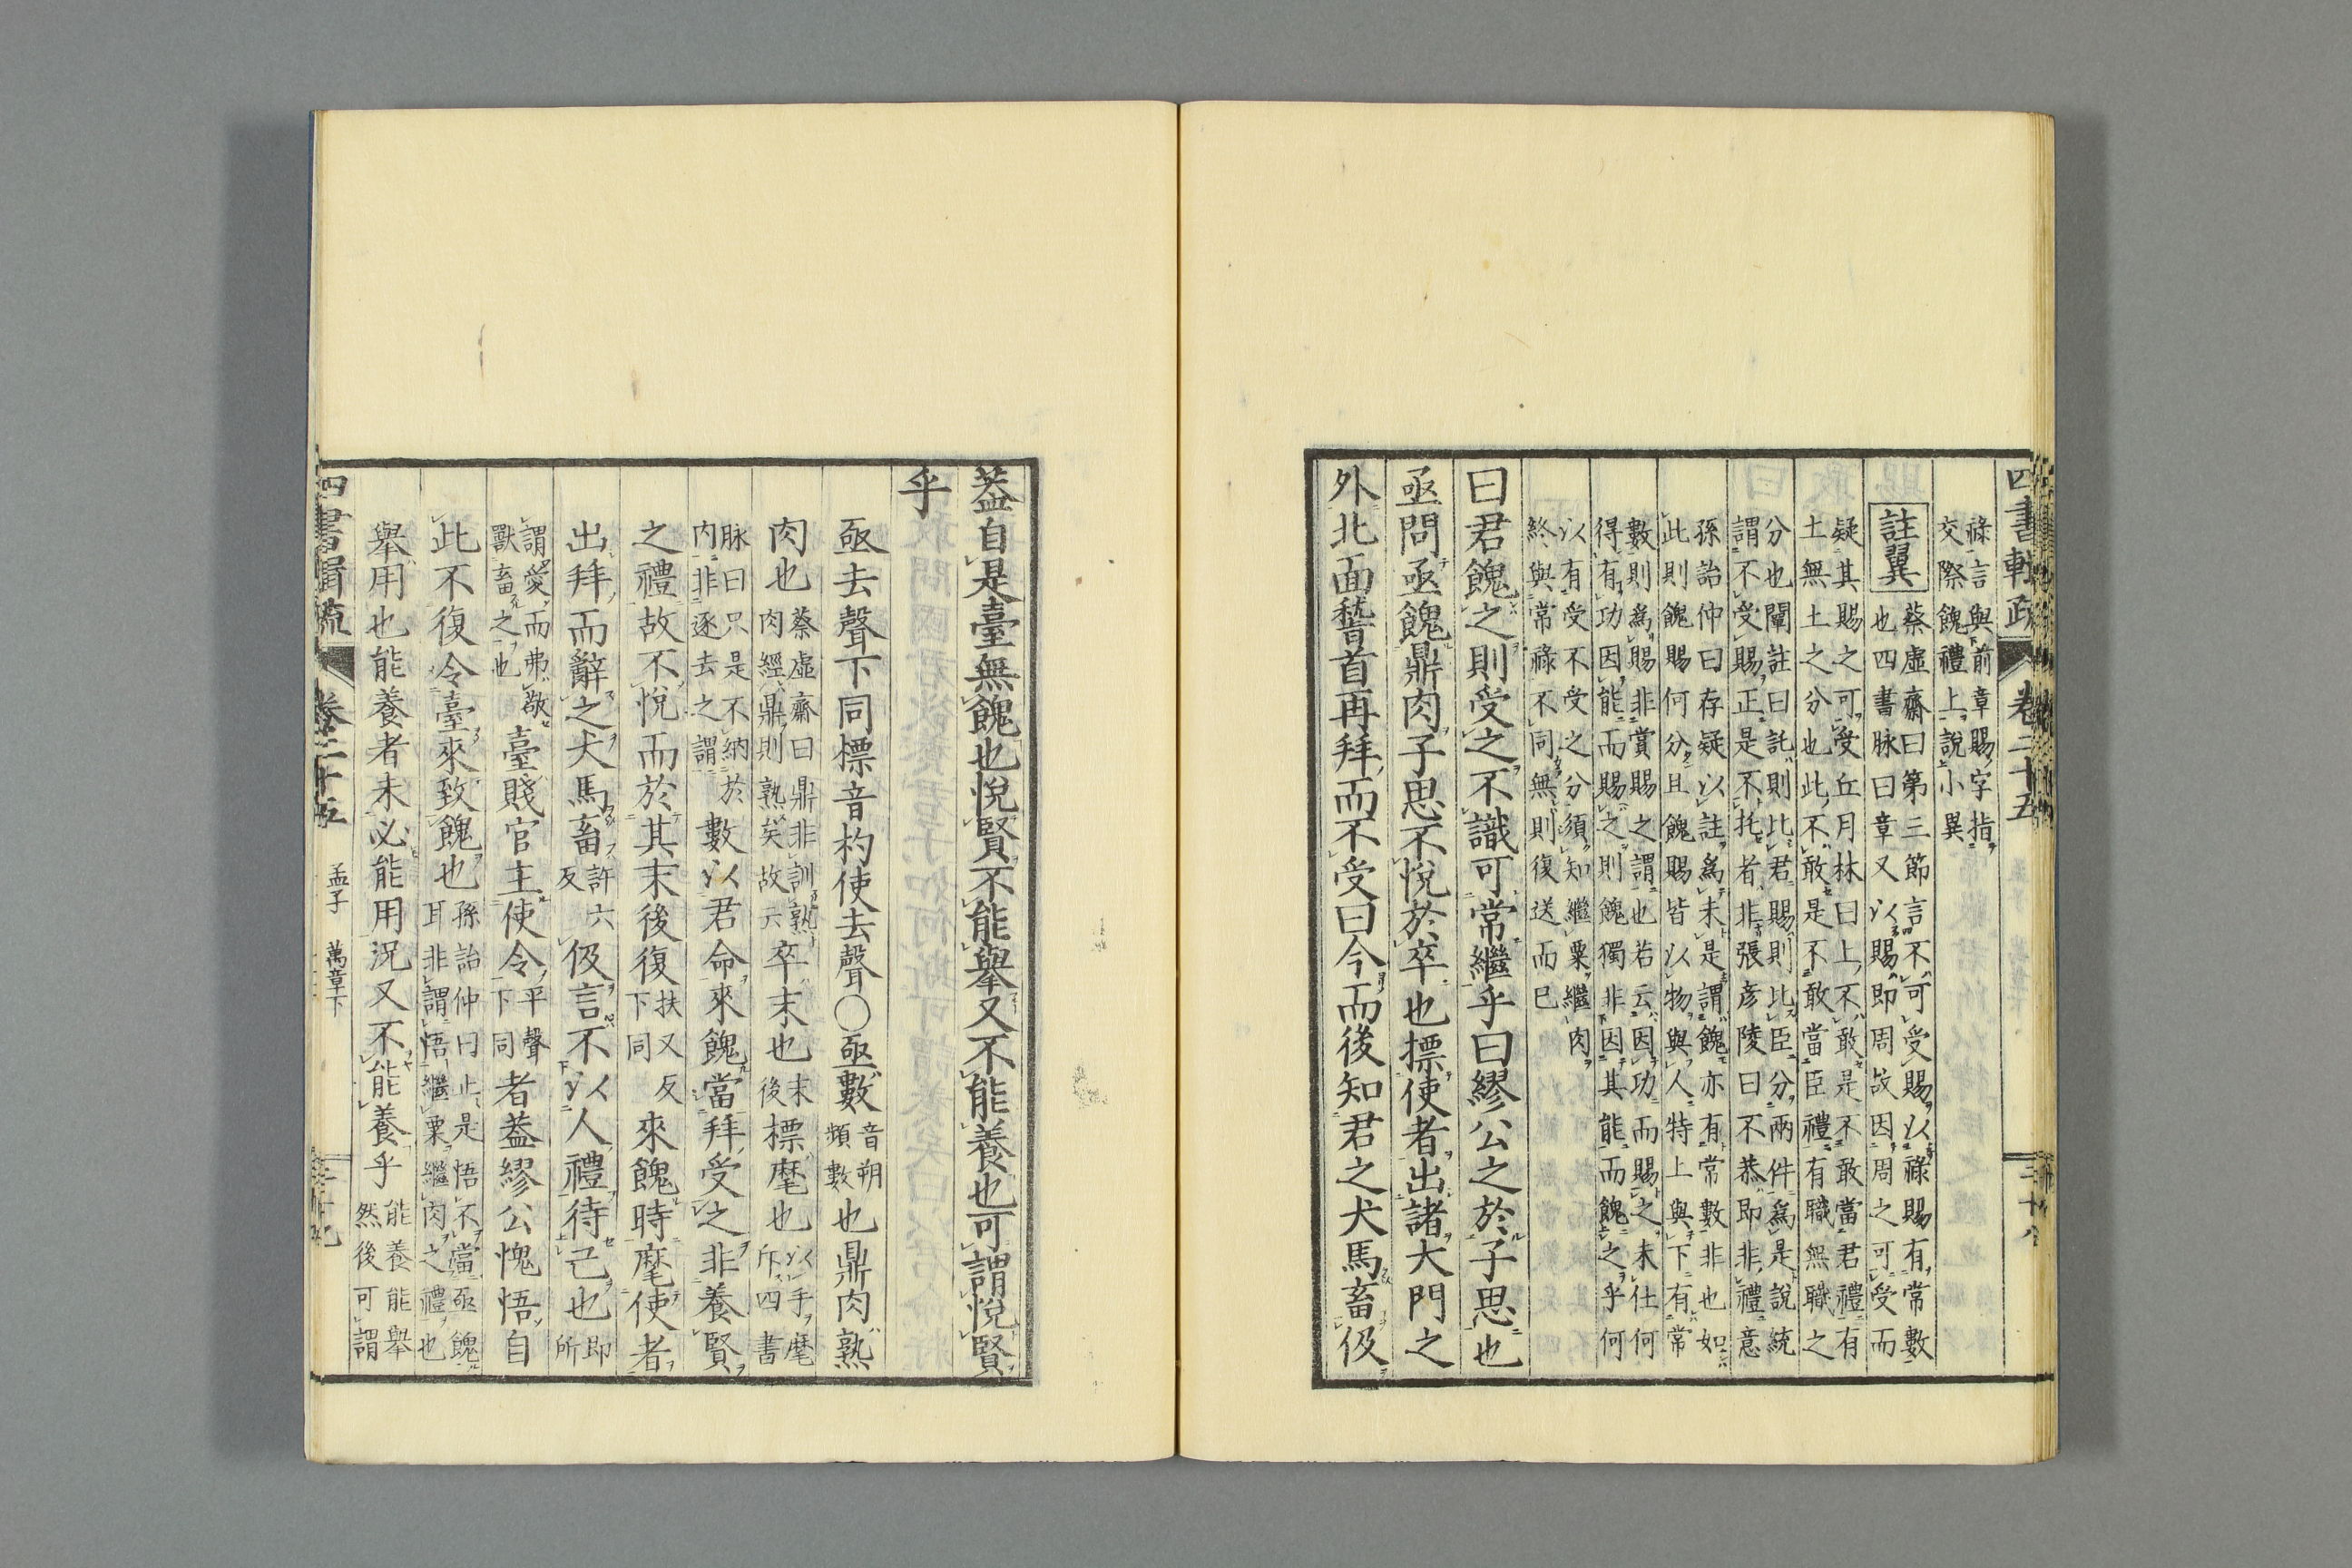 四書輯疏 卷二十五 三十八
祿言與前章賜字指
交際餽禮上說小異
註翼
蔡虛齋曰第三節言不可受賜以祿賜有常數
也四書脉曰章又以賜即周故因周之可受而
疑其賜之可受丘月林曰上不敢是不敢當君禮有
土無土之分也此不敢是不敢當臣禮有職無職之
分也闡註曰託則比君賜則比臣分兩件爲是說統
謂不受賜正是不托者非張彥陵曰不恭即非禮意
孫詒仲曰存疑以註爲未是謂餽亦有常數非也如
此則餽賜何分且餽賜皆以物與人特上與下有常
數則爲賜非賞賜之謂也若云因功而賜之未仕何
得有功因能而賜之則餽獨非因其能而餽之乎何
以有受不受之分須知繼粟繼肉
終與常祿不同無則復送而已
曰君餽之則受之不識可常繼乎曰繆公之於子思也
亟問亟餽鼎肉子思不悅於卒也摽使者出諸大門之
外北面稽首再拜而不受曰今而後知君之犬馬畜伋
葢自是臺無餽也悅賢不能舉又不能養也可謂悅賢
乎
亟去聲下同標音杓使去聲〇亟數
音朔
頻數
也鼎肉熟
肉也
蔡虛齋曰鼎非訓熟
肉經鼎則熟矣故云
卒末也
末
後
標麾也
以手麾
斥四書
脉曰只是不納於
內非逐去之謂
數以君命來餽當拜受之非養賢
之禮故不悅而於其末後復
扶又反
下同
來餽時麾使者
出拜而辭之犬馬畜
許六
反
伋言不以人禮待己也
即
所
謂愛而弗敬
獸畜之也
臺賤官主使令
平聲
下同
者葢繆公愧悟自
此不復令臺來致餽也
孫詒仲曰止是悟不當亟餽
耳非謂悟繼粟繼肉之禮也
舉用也能養者未必能用況又不能養乎
能養能舉
然後可謂
四書輯疏 卷二十五 孟子 萬章下 三十九